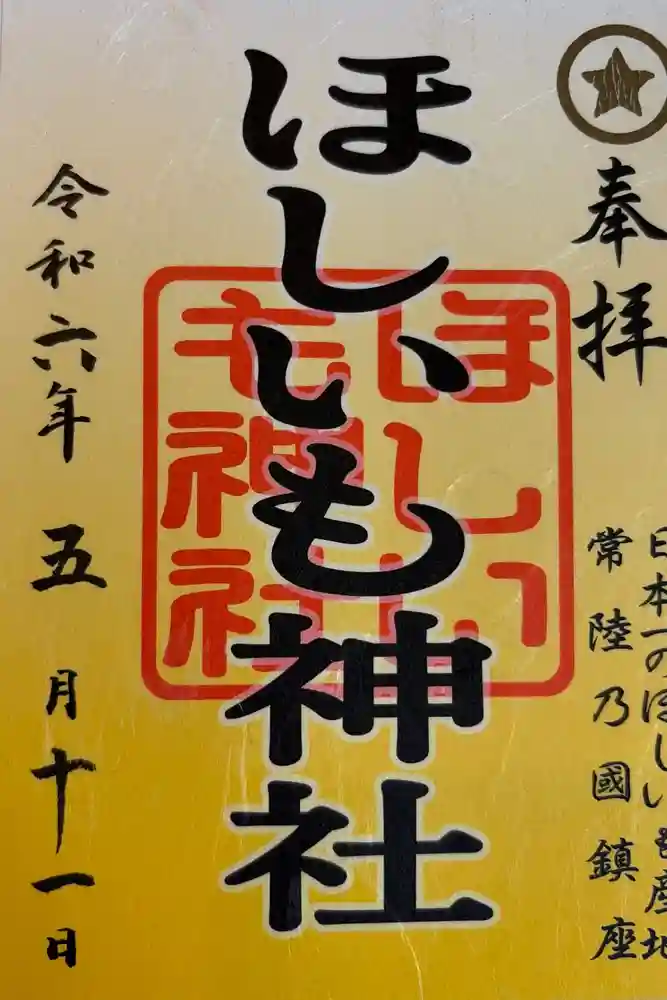 奉拝
日本一のほしいも産地
常陸乃國鎮座
ほしいも神社
ほしいも神社
令和六年五月十一日